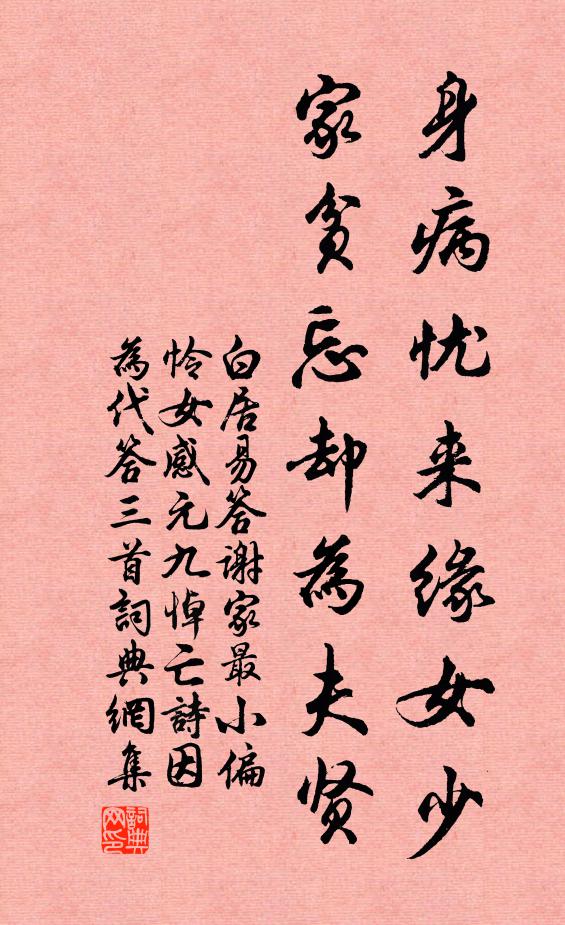 身病忧来缘女少
家贫忘却為夫贤
白居易答谢家最小偏
怜女感元九悼亡詩因
為代答三首詞典網集
詞典
网印